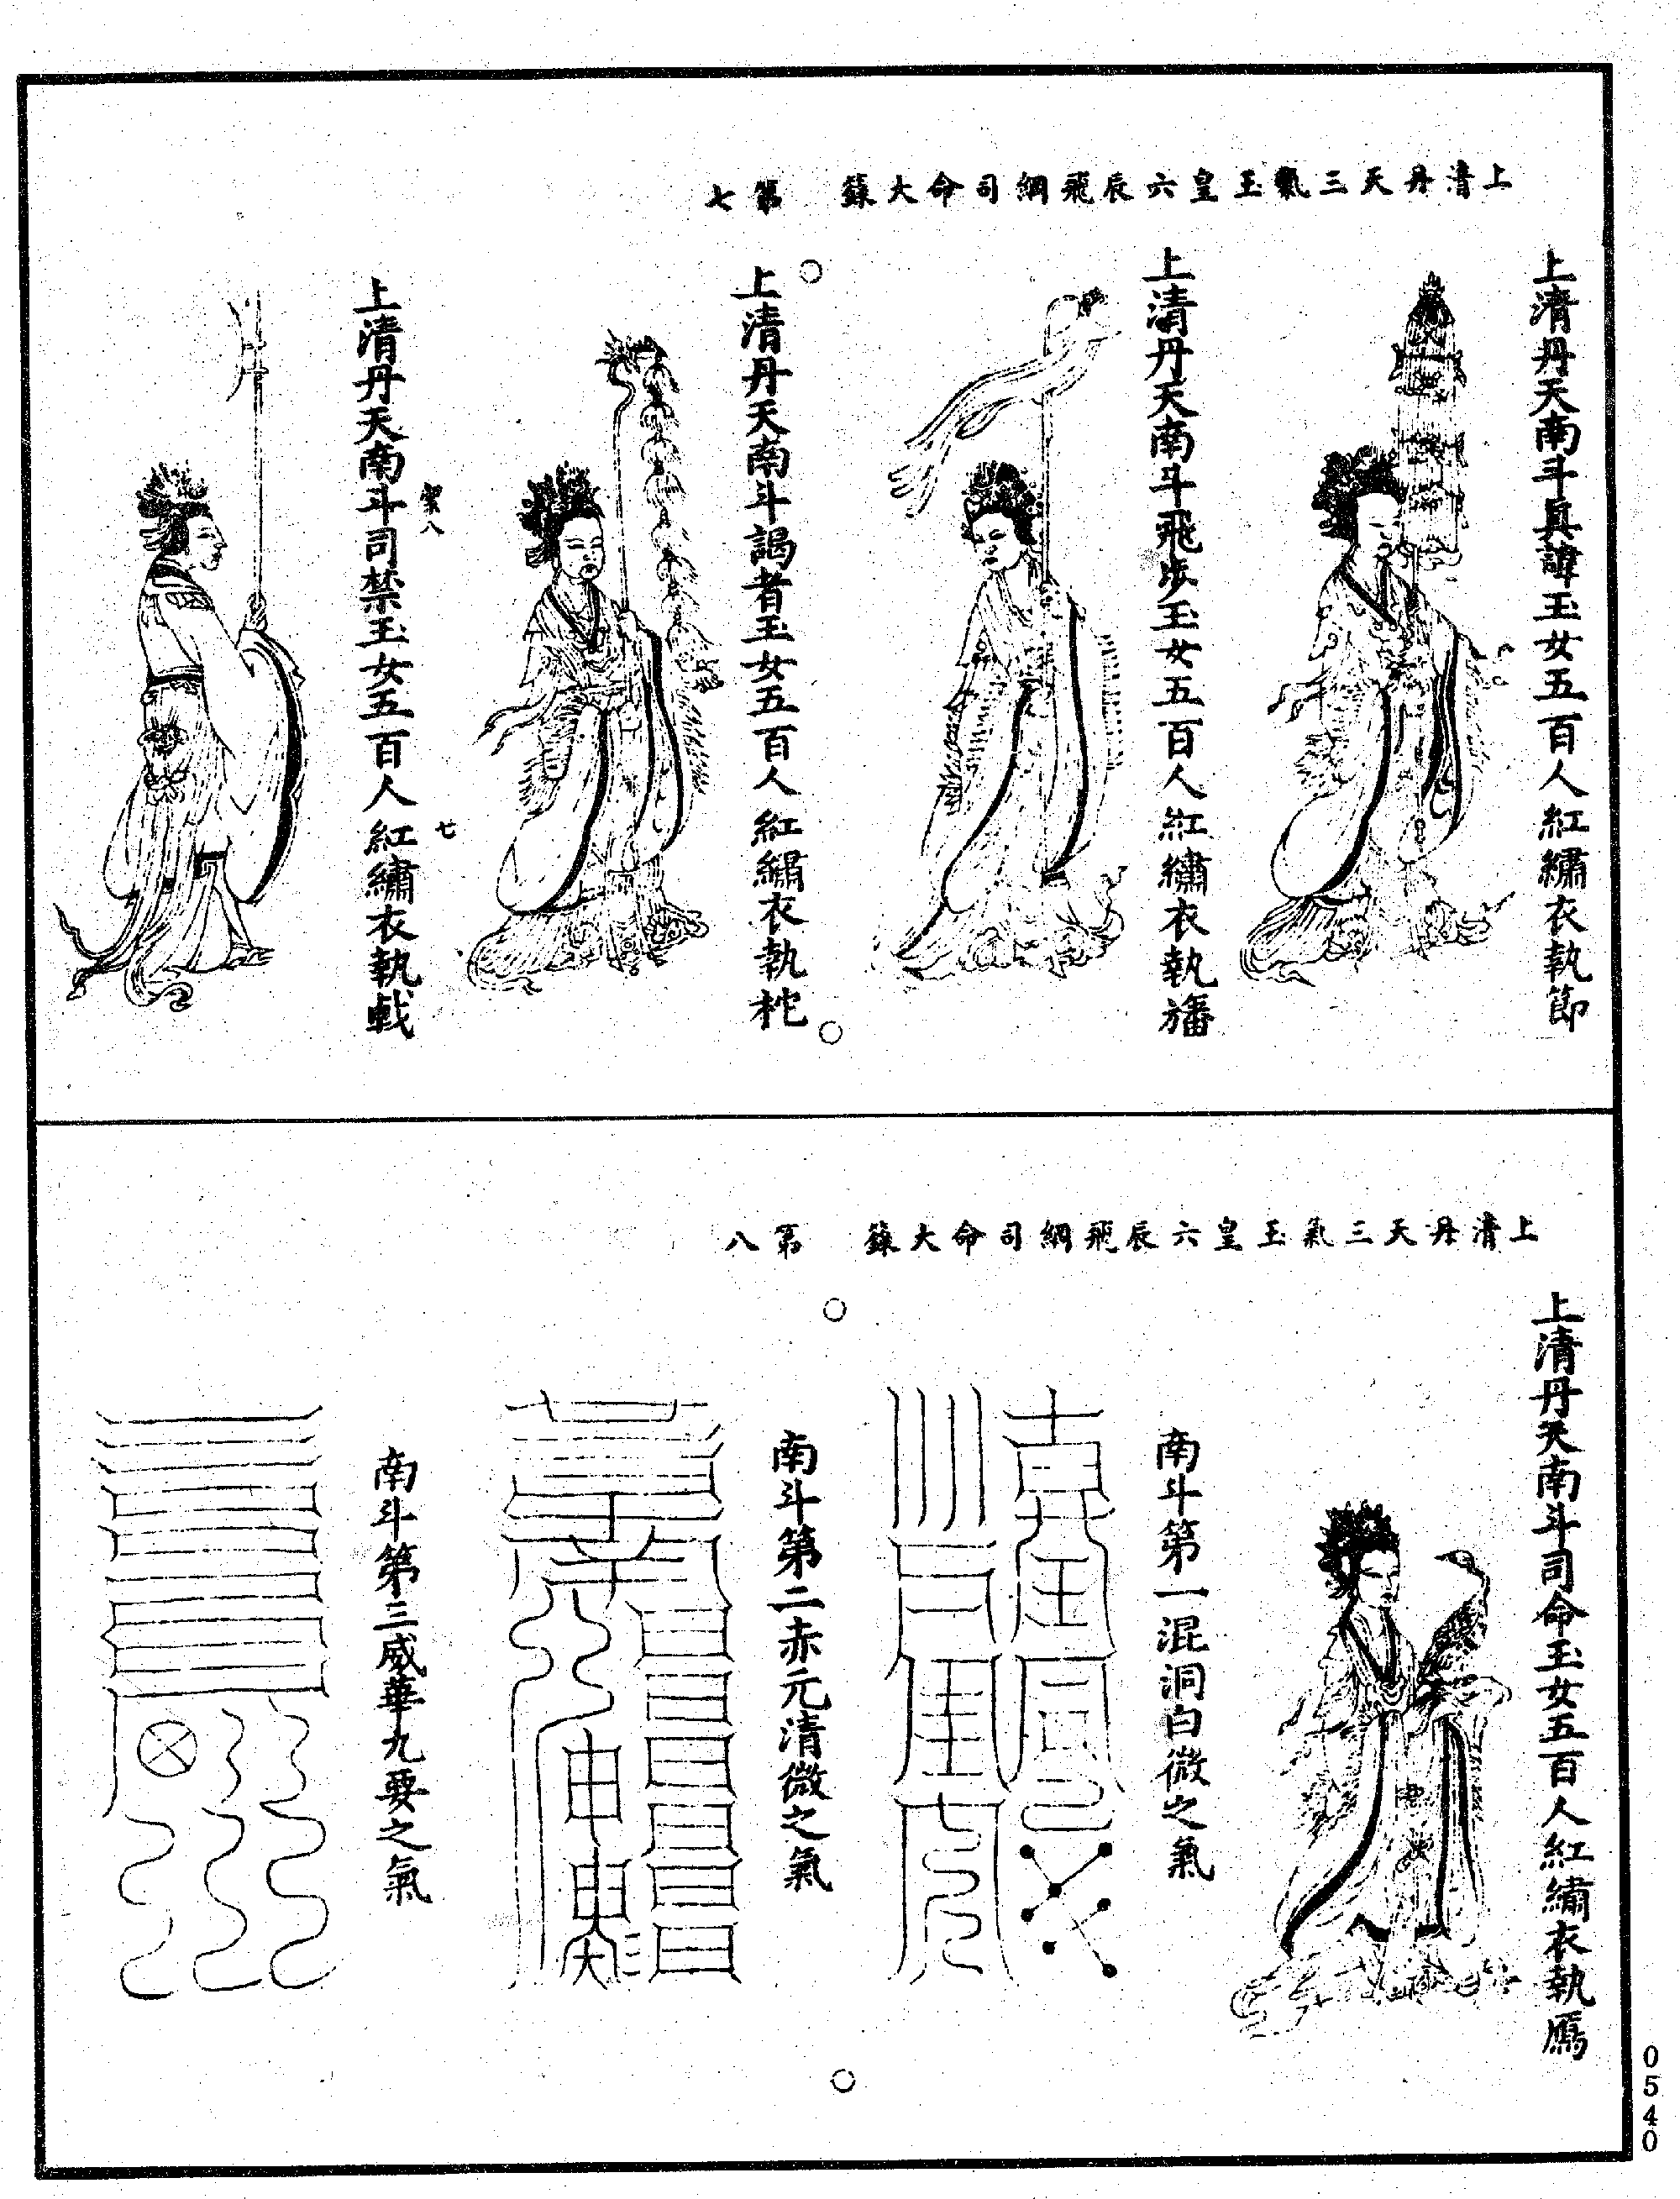 上清丹天三氣玉皇六辰飛綱司命大籙　第七
上清丹天南斗真諱玉女五百人紅繡衣執節
上清丹天南斗飛步玉女五百人紅繡衣執旛
上清丹天南斗謁者玉女五百人紅繡衣執柁
八
七
上清丹天南斗司禁玉女五百人紅繡衣執戟
上清丹天三氣玉皇六辰飛綱司命大籙　第八
上清丹天南斗司命玉女五百人紅繡衣執鴈
南斗第一混洞白微之氣
南斗第二赤元清微之氣
南斗第三威華九要之氣
0540